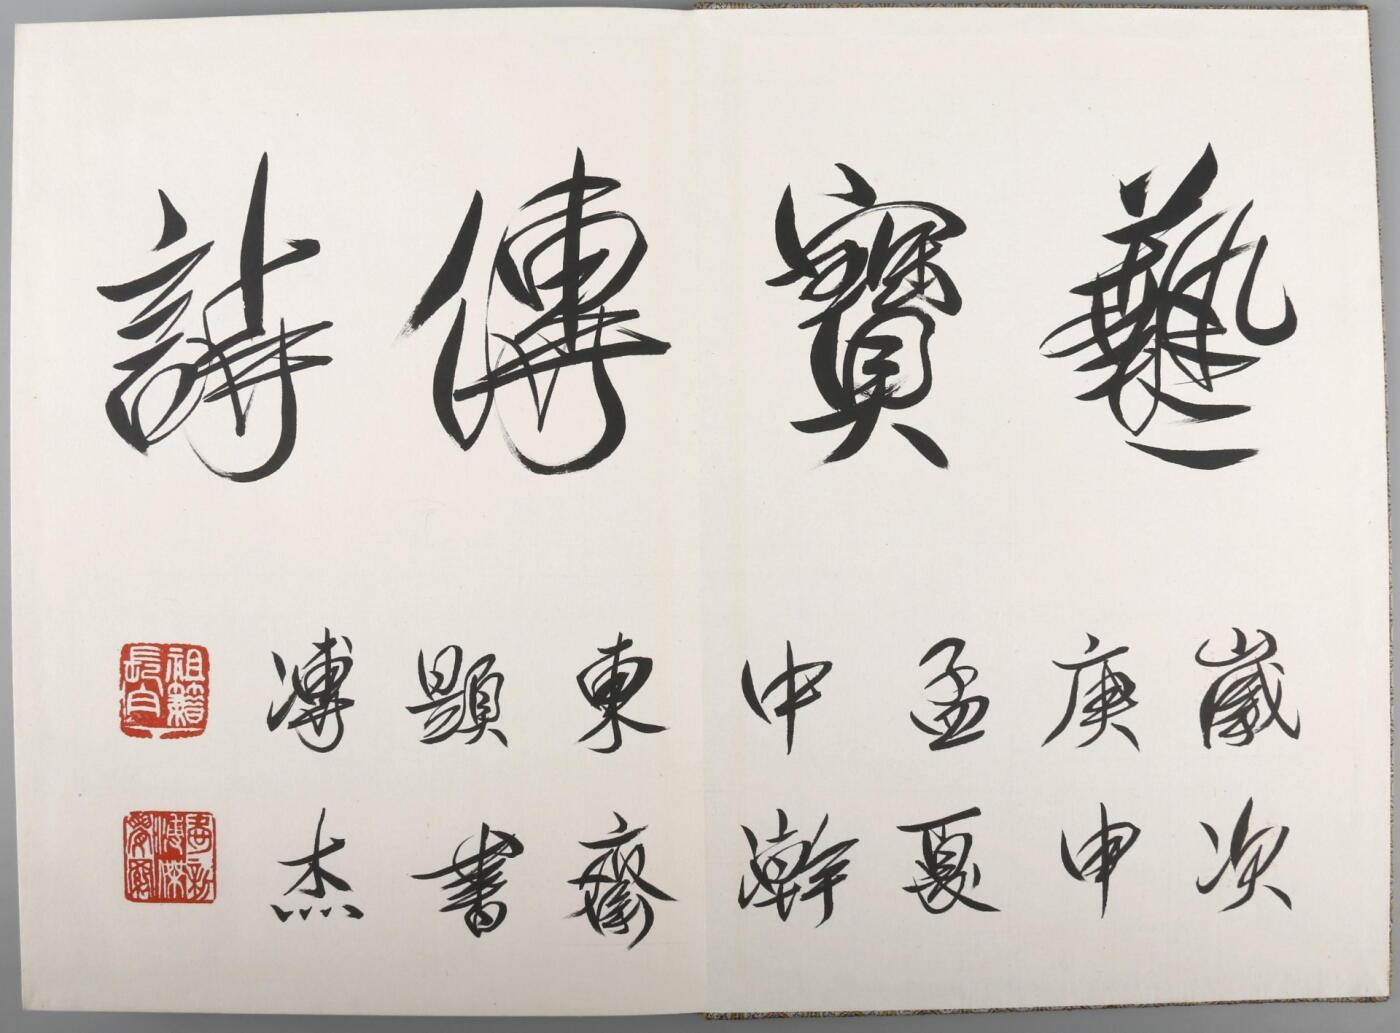 藝寶傳詩
歲次
庚申
孟夏
中澣
東齋
題書
溥杰
祖籍長白